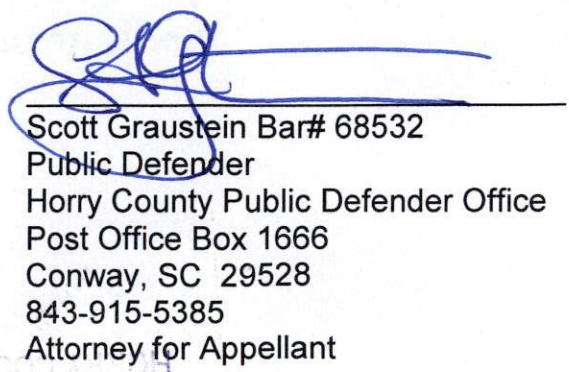 Scott Graustein Bar# 68532
Public Defender
Horry County Public Defender Office
Post Office Box 1666
Conway, SC  29528
843-915-5385
Attorney for Appellant